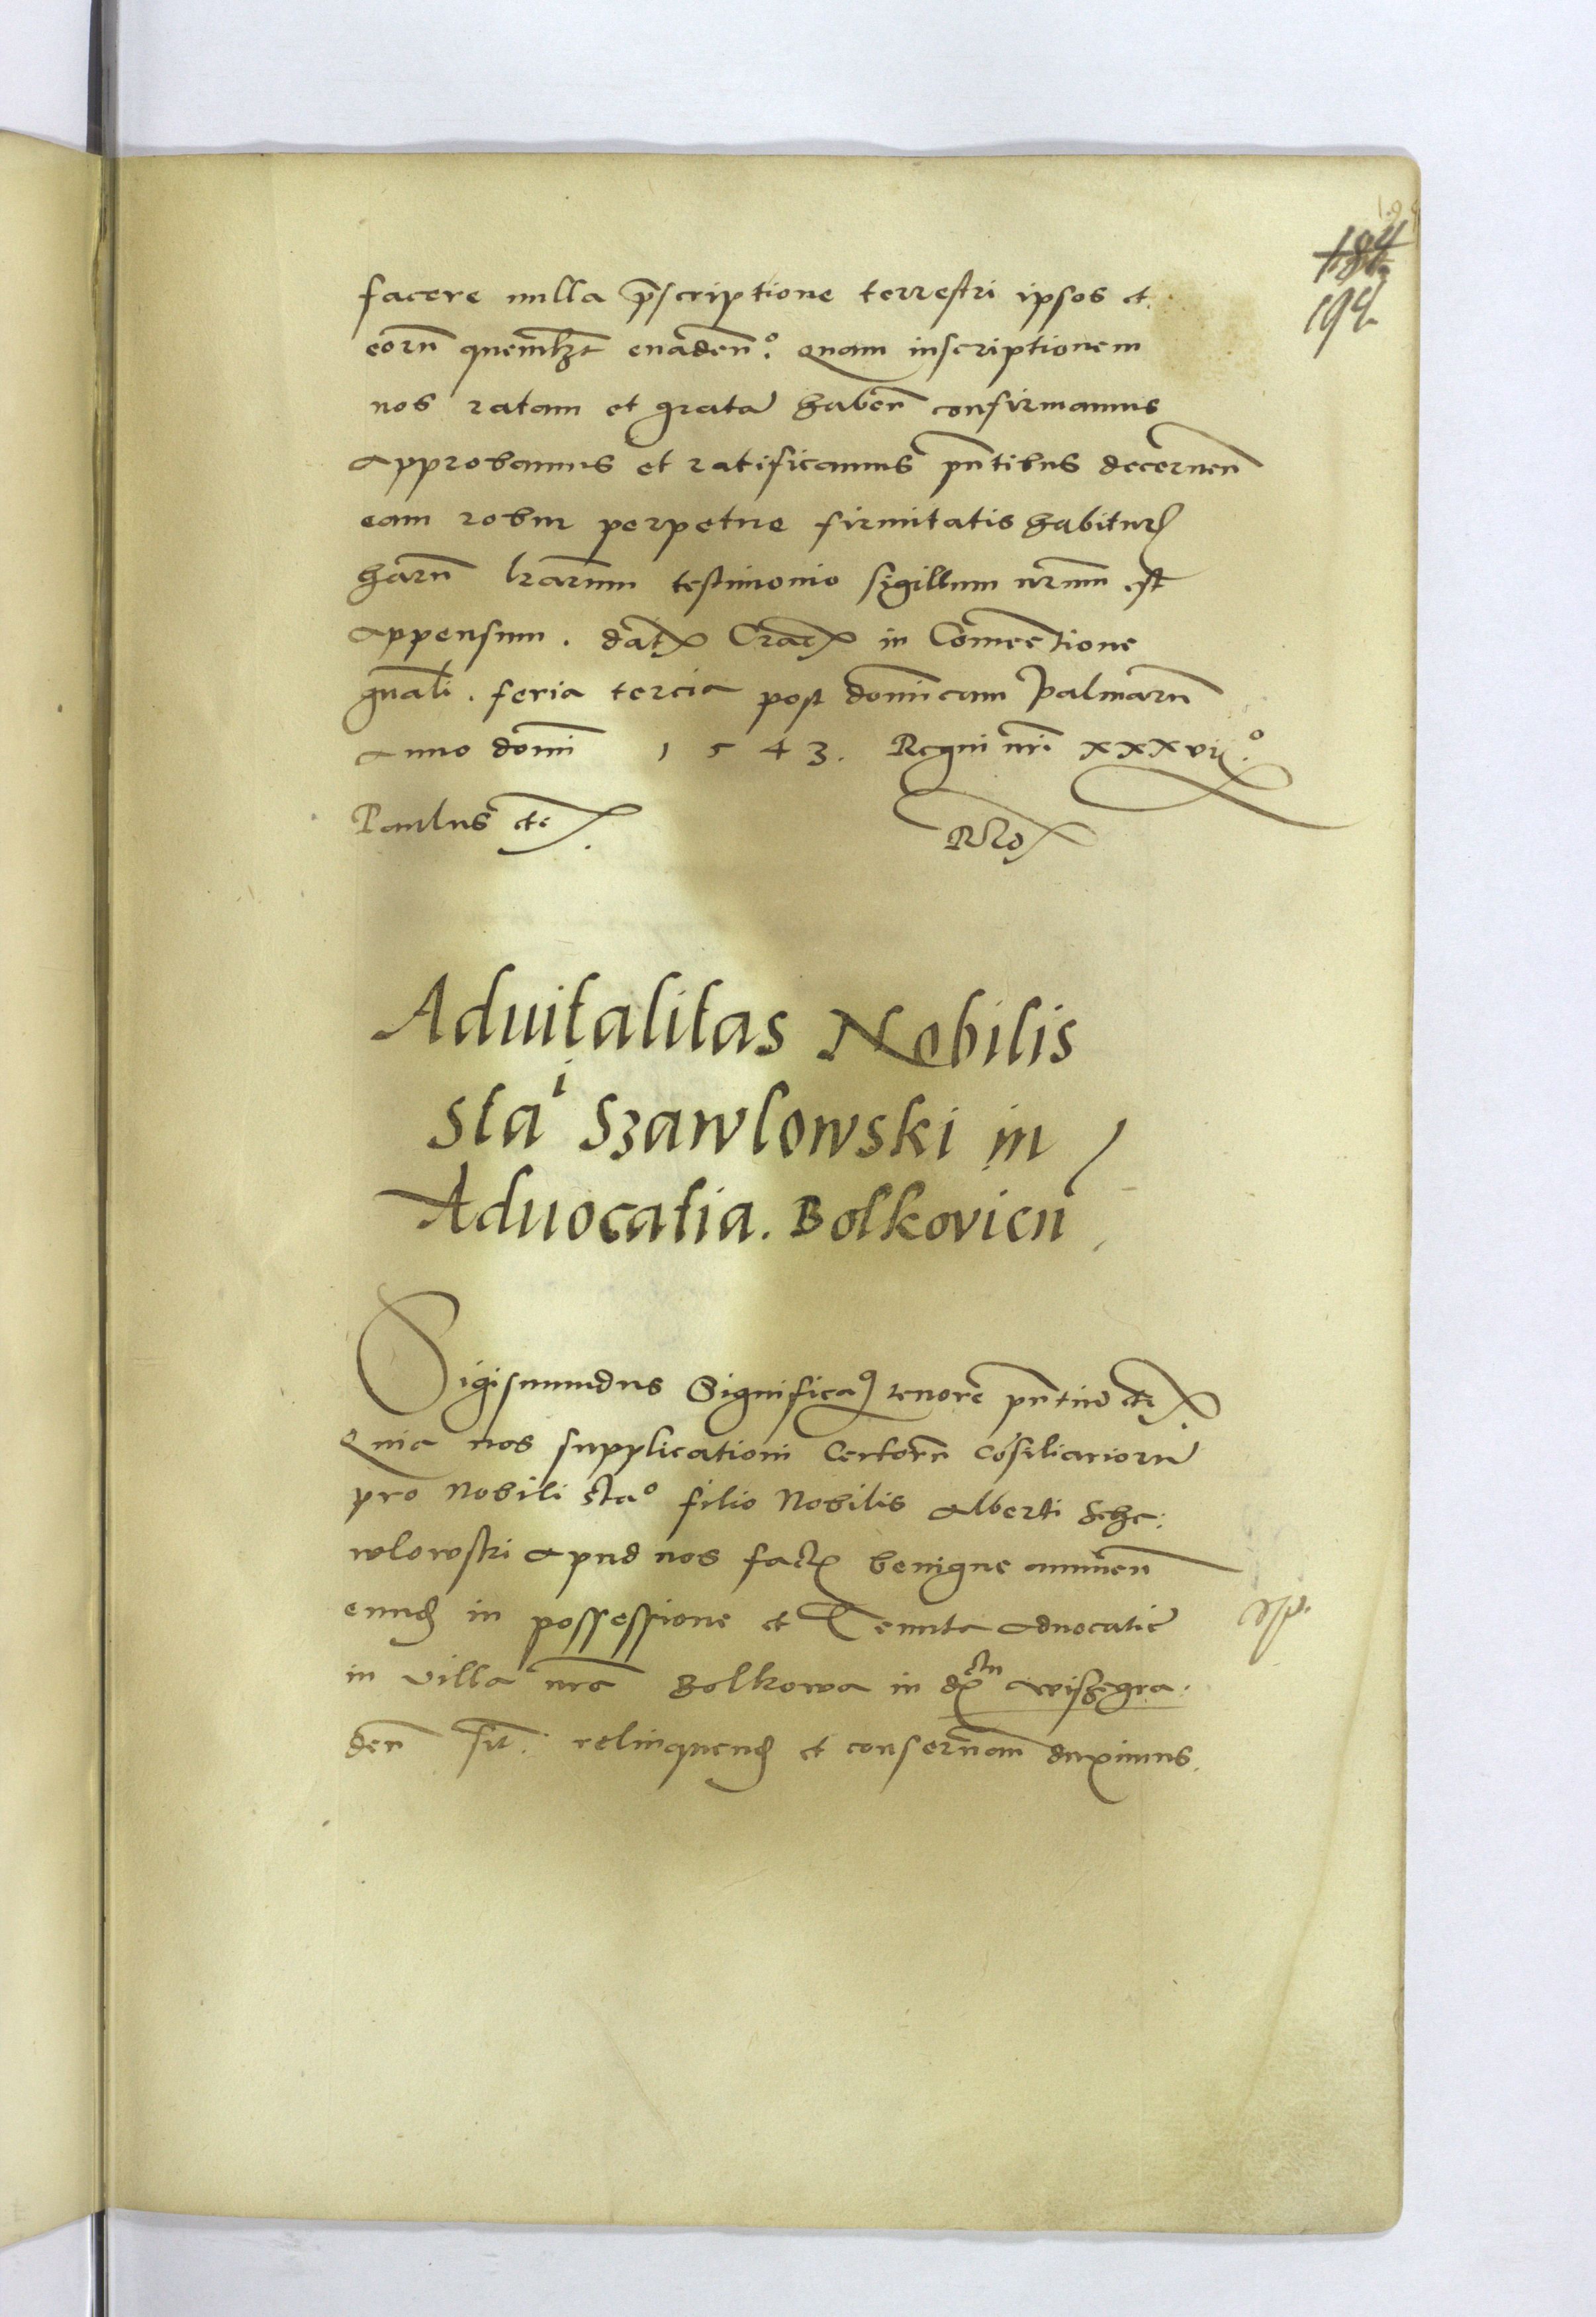 184
194
facere nulla p̄scriptione terrestri ipsos et
eorū quemlꝫt euadeñ. Quam inscriptionem
nos ratam et gratā habeñ confirmamus
approbamus et ratificamus p̄ntibus decerneñ
eam robur perpetue firmitatis habitur
harū lrarum testimonio sigillum nr̄um est
appensum. dat Crac in Conuentione
gn̄ali. feria tercia post dominicam Palmarū
Anno domī 1543. Regni nr̄i xxxvii.º
Paulus etc
Aduitalitas Nobilis
Staⁱ Szawlowski in
Aduocatia. Bolkovicñ
Sigismundus Significaꝰ tenore p̄ntiū etc
Quia nos supplicationi Certorū Cōsiliariorū
pro Nobili Staº filio Nobilis Alberti Scha:
wlowski apud nos fact benigne annueñ
eund in possessione et Tenuta aduocatie
in villa nr̄a Bolkowa in d wisshegra:
deñ sit: relinquend et conseruan̄ duximus.